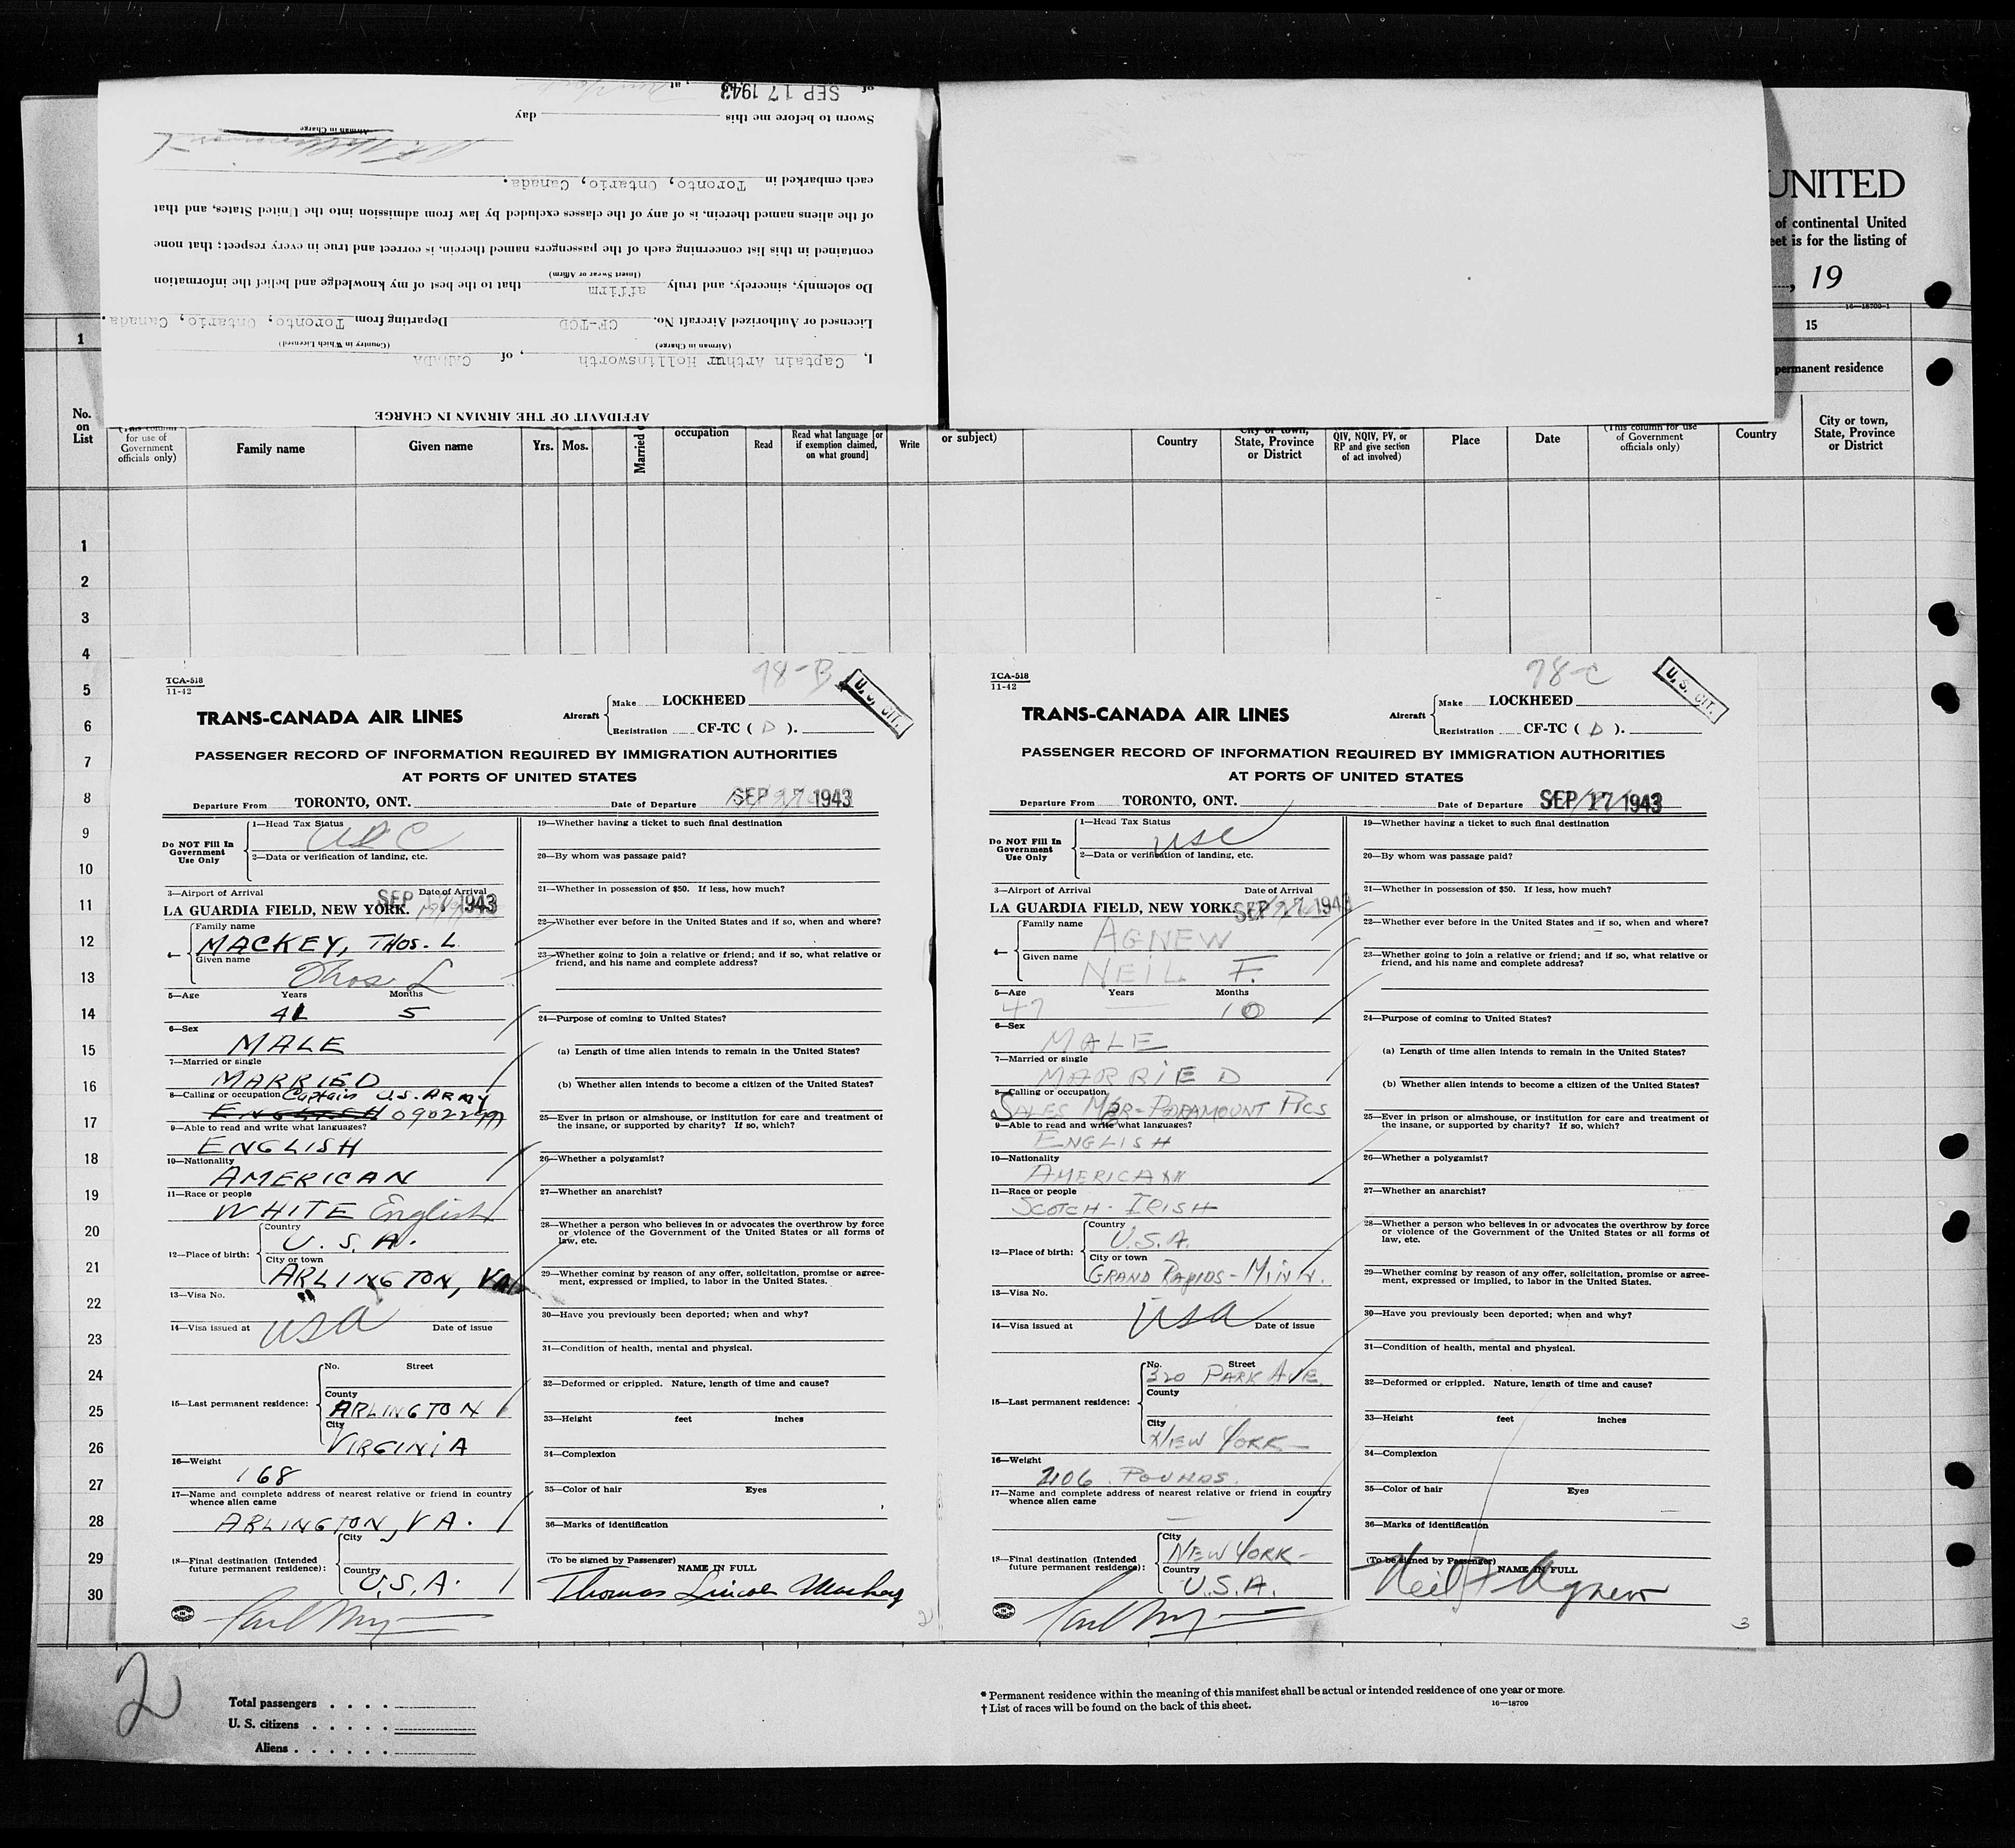 AFFIDAVIT OF THE AIRMAN IN CHARGE
I, Captain Arthur Hollinsworth, of CANADA
(Airman in Charge) (Country in Which Licensed)
Licensed or Authorized Aircraft No. CF-TCD Departing from Toronto, Ontario, Canada.
Do solemnly, sincerely, and truly affirm that to the best of my knowledge and belief the information
(Insert Swear or Affirm)
contained in this list concerning each of the passengers named therein, is correct and true in every respect; that none
of the aliens named therein, is of any of the classes excluded by law from admission into the United States, and that
each embarked in Toronto, Ontario, Canada.
Airman in Charge
Sworn to before me this day
of SEP 17 1943, at New York
UNITED
of continental United
eet is for the listing of
, 19
16—18709-1
1
15
permanent residence
No. on List
(This column for use of Government officials only)
Family name
Given name
Yrs.
Mos.
Married o
occupation
Read
Read what language [or if exemption claimed, on what ground]
Write
or subject)
Country
City or town, State, Province or District
QIV, NQIV, PV, or RP and give section of act involved)
Place
Date
(This column for use of Government officials only)
Country
City or town, State, Province or District
1
2
3
4
5
6
7
8
9
10
11
12
13
14
15
16
17
18
19
20
21
22
23
24
25
26
27
28
29
30
TCA-518
11-42
78-B
U.S. CIT.
TRANS-CANADA AIR LINES
Aircraft
Make LOCKHEED
Registration CF-TC ( D ).
PASSENGER RECORD OF INFORMATION REQUIRED BY IMMIGRATION AUTHORITIES
AT PORTS OF UNITED STATES
Departure From TORONTO, ONT. Date of Departure SEP 17 1943
Do NOT Fill In Government Use Only
1—Head Tax Status
USC
2—Data or verification of landing, etc.
3—Airport of Arrival Date of Arrival
LA GUARDIA FIELD, NEW YORK. SEP 17 1943
4—
Family name
MACKEY, THOS. L.
Given name
Thos L
5—Age Years Months
41 5
6—Sex
MALE
7—Married or single
MARRIED
8—Calling or occupation Captain U.S. ARMY
ENGLISH
9—Able to read and write what languages?
ENGLISH
10—Nationality
AMERICAN
11—Race or people
WHITE English
12—Place of birth:
Country
U. S. A.
City or town
ARLINGTON, VA
13—Visa No.
USA
14—Visa issued at Date of issue
15—Last permanent residence:
No. Street
County
ARLINGTON
City
VIRGINIA
16—Weight
168
17—Name and complete address of nearest relative or friend in country
whence alien came
ARLINGTON, VA.
18—Final destination (Intended
future permanent residence):
City
Country
U.S.A.
19—Whether having a ticket to such final destination
20—By whom was passage paid?
21—Whether in possession of $50. If less, how much?
22—Whether ever before in the United States and if so, when and where?
23—Whether going to join a relative or friend; and if so, what relative or
friend, and his name and complete address?
24—Purpose of coming to United States?
(a) Length of time alien intends to remain in the United States?
(b) Whether alien intends to become a citizen of the United States?
25—Ever in prison or almshouse, or institution for care and treatment of
the insane, or supported by charity? If so, which?
26—Whether a polygamist?
27—Whether an anarchist?
28—Whether a person who believes in or advocates the overthrow by force
or violence of the Government of the United States or all forms of
law, etc.
29—Whether coming by reason of any offer, solicitation, promise or agree-
ment, expressed or implied, to labor in the United States.
30—Have you previously been deported; when and why?
31—Condition of health, mental and physical.
32—Deformed or crippled. Nature, length of time and cause?
33—Height feet inches
34—Complexion
35—Color of hair Eyes
36—Marks of identification
(To be signed by Passenger) NAME IN FULL
Thomas Lincoln Mackey
2
TCA-518
11-42
78-C
U.S. CIT.
TRANS-CANADA AIR LINES
Aircraft
Make LOCKHEED
Registration CF-TC ( D ).
PASSENGER RECORD OF INFORMATION REQUIRED BY IMMIGRATION AUTHORITIES
AT PORTS OF UNITED STATES
Departure From TORONTO, ONT. Date of Departure SEP 17 1943
Do NOT Fill In Government Use Only
1—Head Tax Status
USC
2—Data or verification of landing, etc.
3—Airport of Arrival Date of Arrival
LA GUARDIA FIELD, NEW YORK. SEP 17 1943
4—
Family name
AGNEW
Given name
NEIL F.
5—Age Years Months
47 — 10
6—Sex
MALE
7—Married or single
MARRIED
8—Calling or occupation
SALES MGR-PARAMOUNT PICS
9—Able to read and write what languages?
ENGLISH
10—Nationality
AMERICAN
11—Race or people
SCOTCH-IRISH
12—Place of birth:
Country
U.S.A.
City or town
GRAND RAPIDS-MINN.
13—Visa No.
USA
14—Visa issued at Date of issue
15—Last permanent residence:
No. Street
320 PARK AVE.
County
City
NEW YORK—
16—Weight
206 POUNDS.
17—Name and complete address of nearest relative or friend in country
whence alien came
—
18—Final destination (Intended
future permanent residence):
City
NEW YORK-
Country
U.S.A.
19—Whether having a ticket to such final destination
20—By whom was passage paid?
21—Whether in possession of $50. If less, how much?
22—Whether ever before in the United States and if so, when and where?
23—Whether going to join a relative or friend; and if so, what relative or
friend, and his name and complete address?
24—Purpose of coming to United States?
(a) Length of time alien intends to remain in the United States?
(b) Whether alien intends to become a citizen of the United States?
25—Ever in prison or almshouse, or institution for care and treatment of
the insane, or supported by charity? If so, which?
26—Whether a polygamist?
27—Whether an anarchist?
28—Whether a person who believes in or advocates the overthrow by force
or violence of the Government of the United States or all forms of
law, etc.
29—Whether coming by reason of any offer, solicitation, promise or agree-
ment, expressed or implied, to labor in the United States.
30—Have you previously been deported; when and why?
31—Condition of health, mental and physical.
32—Deformed or crippled. Nature, length of time and cause?
33—Height feet inches
34—Complexion
35—Color of hair Eyes
36—Marks of identification
(To be signed by Passenger) NAME IN FULL
Neil F Agnew
3
2
Total passengers . . . .
U. S. citizens . . . . .
Aliens . . . . . .
* Permanent residence within the meaning of this manifest shall be actual or intended residence of one year or more.
† List of races will be found on the back of this sheet.
16—18709